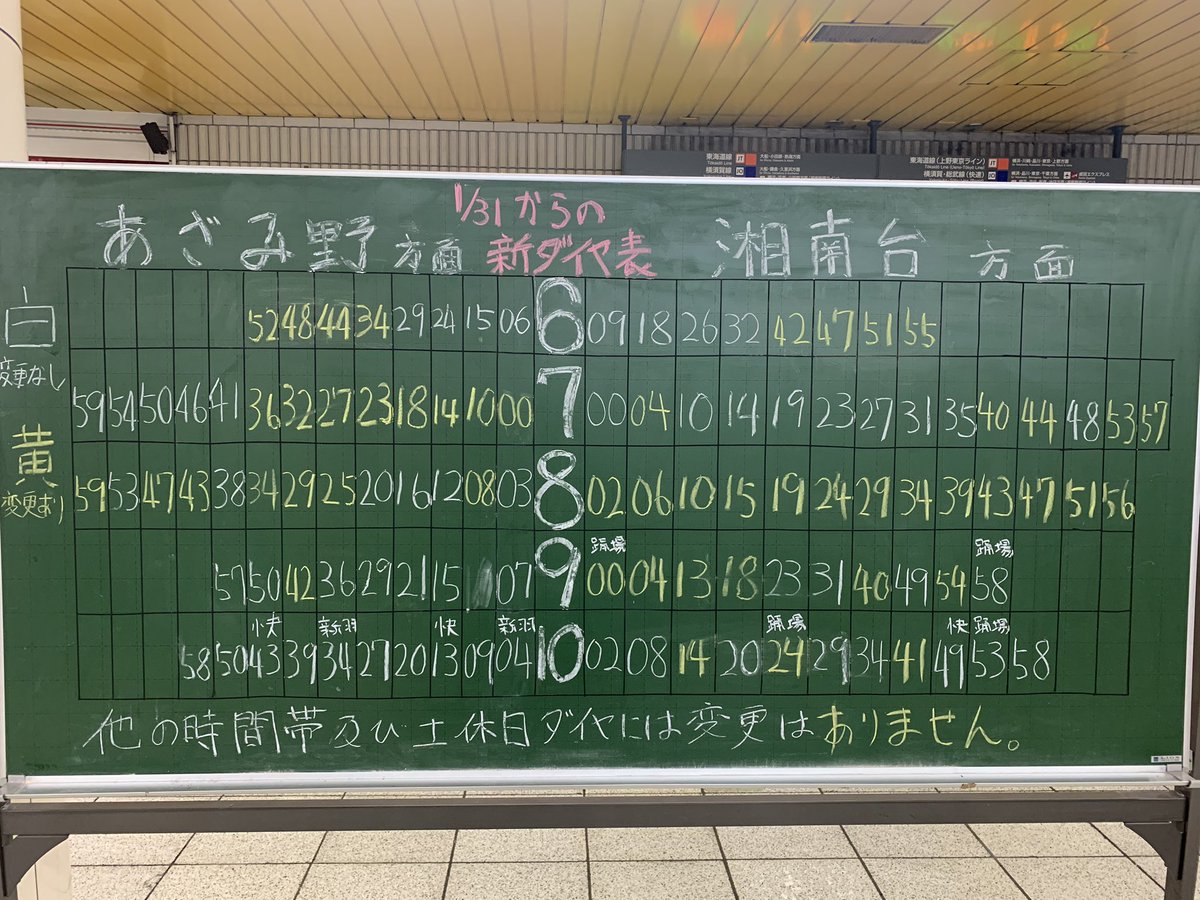 東海道線 JT 大船・小田原・熱海方面
Tōkaidō Line
横須賀線 JO
東海道線(上野東京ライン) JT 横浜・川崎・品川・東京・上野方面
横須賀・総武線(快速) JO 横浜・品川・東京・千葉方面 成田エクスプレス
1/31からの
新ダイヤ表
あざみ野 方面 湘南台 方面
白
変更なし
黄
変更あり
52 48 44 34 29 24 15 06 6 09 18 26 32 42 47 51 55
59 54 50 46 41 36 32 27 23 18 14 10 00 7 00 04 10 14 19 23 27 31 35 40 44 48 53 57
59 53 47 43 38 34 29 25 20 16 12 08 03 8 02 06 10 15 19 24 29 34 39 43 47 51 56
踊場 踊場
57 50 42 36 29 21 15 07 9 00 04 13 18 23 31 40 49 54 58
快 新羽 快 新羽 踊場 快 踊場
58 50 43 39 34 27 20 13 09 04 10 02 08 14 20 24 29 34 41 49 53 58
他の時間帯及び土休日ダイヤには変更はありません。